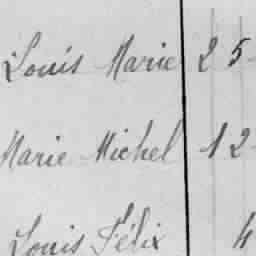 Louis Marie 25
Marie Michel 12
Louis Félix 4